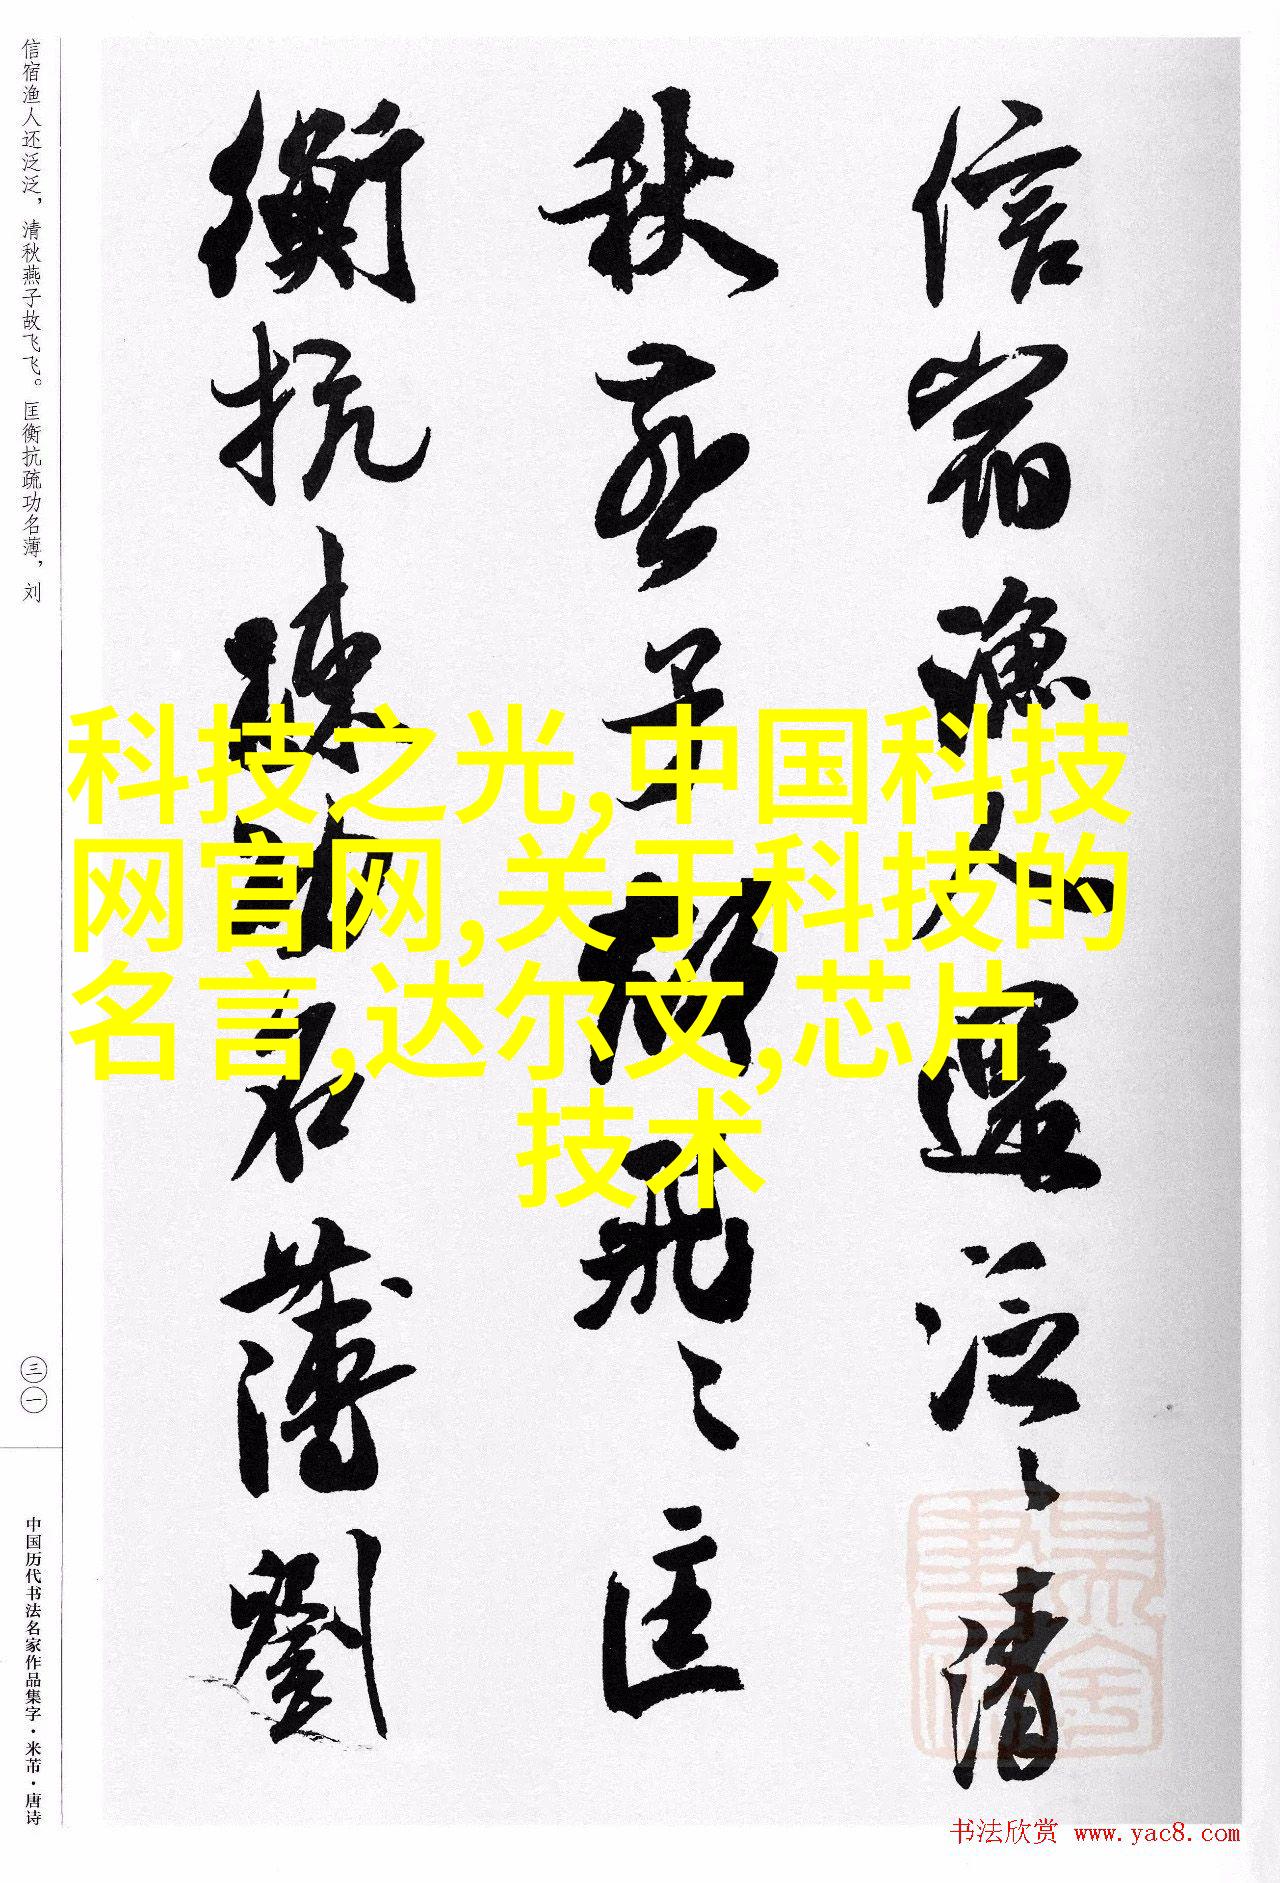 信宿渔人还泛泛，清秋燕子故飞飞。匡衡抗疏功名薄，刘
三一
中国历代书法名家作品集字·米芾·唐诗
信宿漁人還泛〻清
秋燕子故飛〻匡
衡抗疏功名薄劉
科技之光,中国科技
网官网,关于科技的
名言,达尔文,芯片
技术
书法欣赏 www.yac8.com